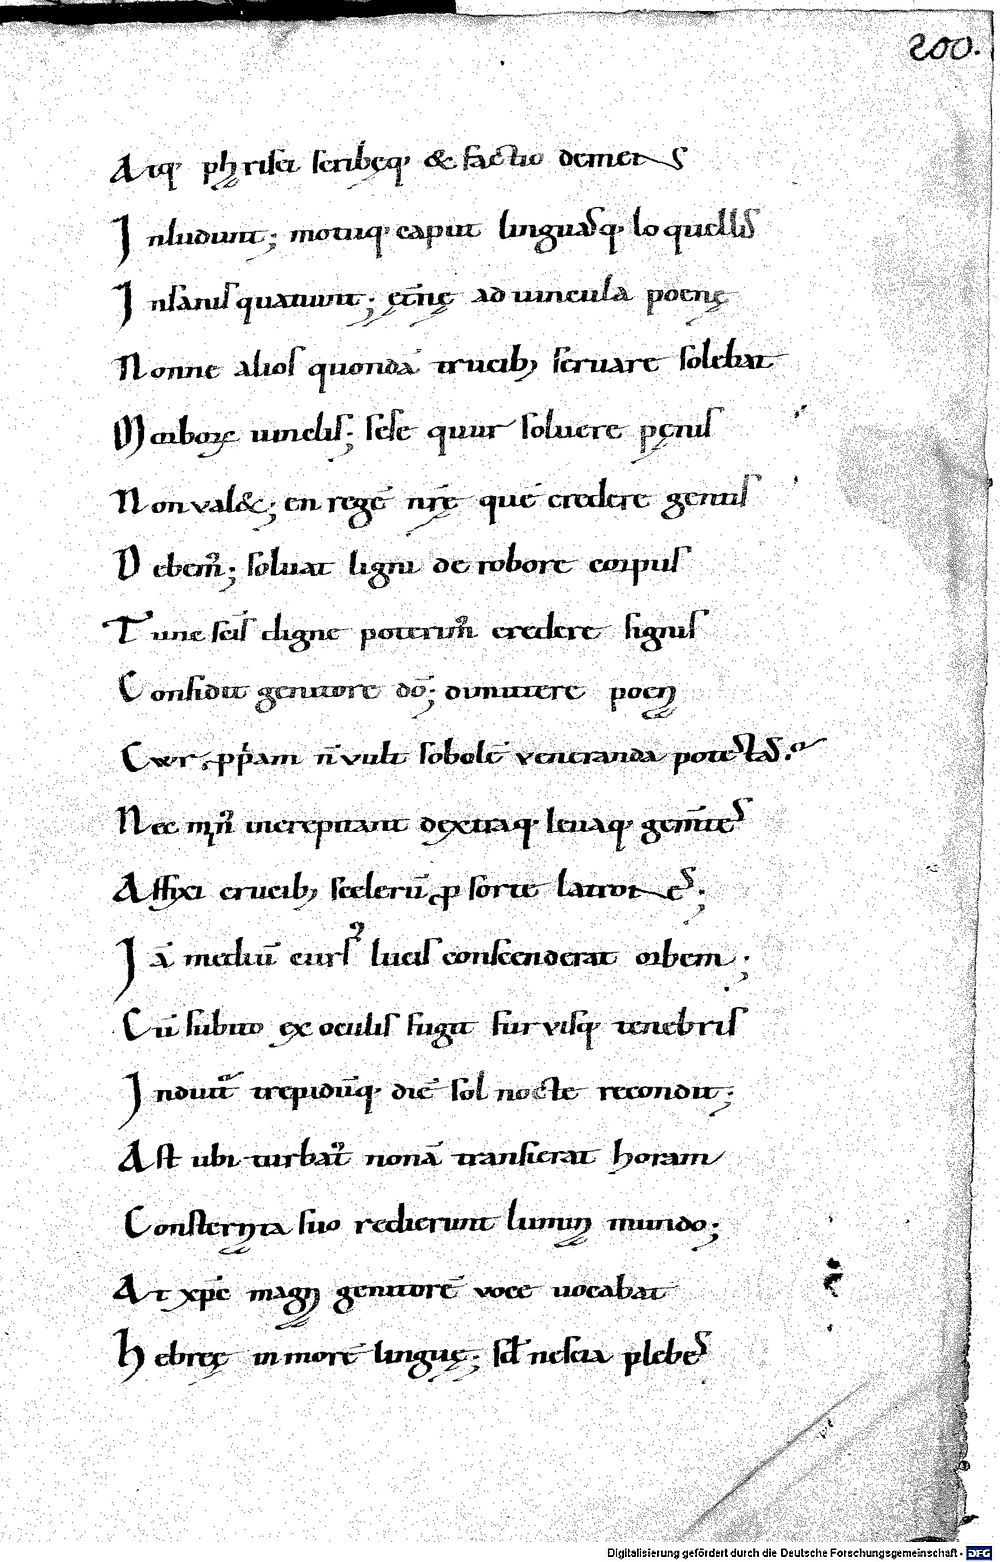 200.
Atq; phrisęi scribęq; & factio demens
Inludunt; motuq; caput linguasq; loquellis
Insanis quatiunt; ęt̄nę ad uincula poenę
Nonne alios quondā trucib; seruare solebat
Morboꝝ uinclis; sese quur soluere pęnis
Non val&; en regē nr̄ē quē credere gentis
Debem̄; soluat ligni de robore corpus
Tunc sc̄is digne poterim̄ credere signis
Confidit genitore dō; dimittere poen
Cur ꝓpriam n̄ vult sobolē veneranda potestas.
Nec min̄ increpitant dęxtraq; leuaq; gem̄tes
Affixi crucib; scelerū ꝓ sorte latrones;
Iā mediū curs᾽ lucis conscenderat orbem;
Cū subito ex oculis fugit furvisq; tenebris
Induit᾽ trepidūq; diē sol nocte recondit;
Ast ubi turbat᾽ nonā transierat horam
Consternata suo redierunt lumin mundo;
At xp̄c magn genitorē voce uocabat
Hebręę in morē linguę; sed nescia plebes
Digitalisierung gefördert durch die Deutsche Forschungsgemeinschaft - DFG